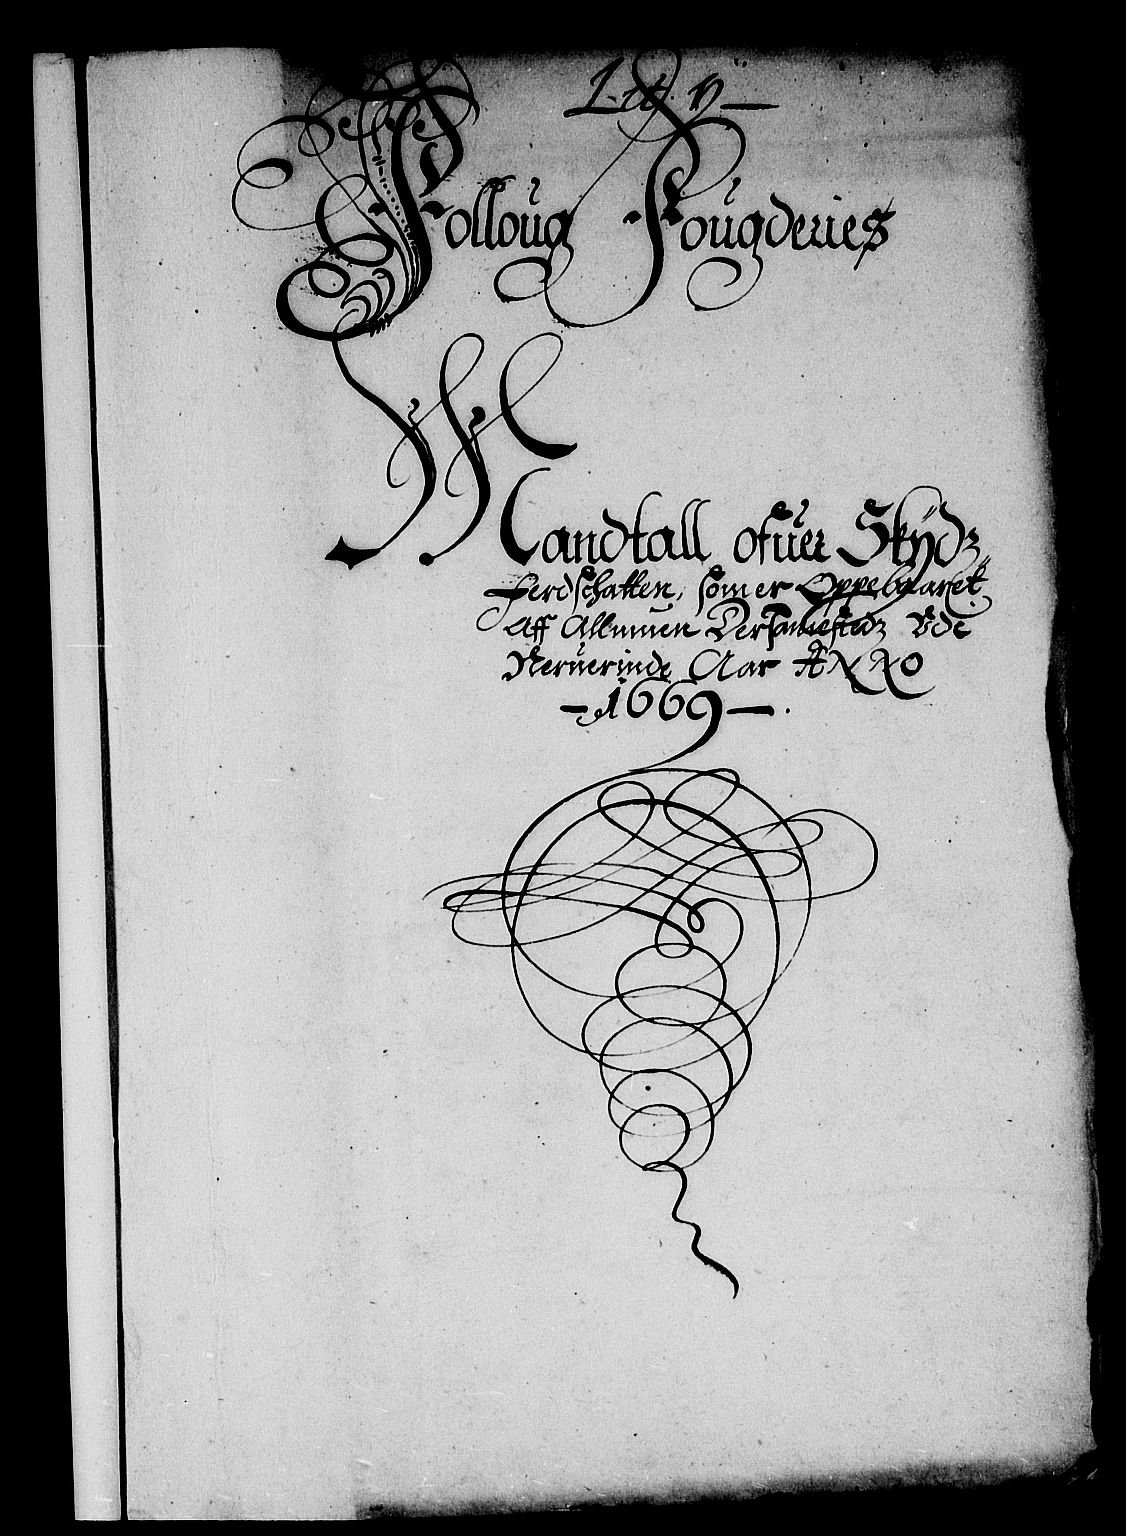 Lit. D
Folloug Fougderies
Mandtall ofuer Skÿdz
Ferdschatten, som er Oppebaaret
Aff Allmuen Dersammestedz Vdi
Neruerinde Aar ANNO
1669